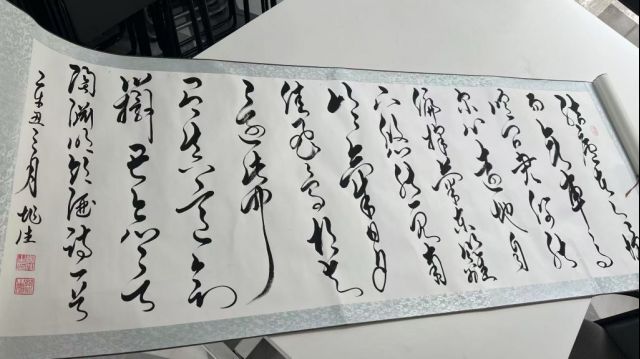 結廬在人境
而無車馬
喧問君何能
爾心遠地自
偏採菊東籬
下悠然見南
山氣日夕
佳飛鳥相與
還此中
有真意欲
辨已忘言
陶淵明飲酒詩一首
辛丑三月